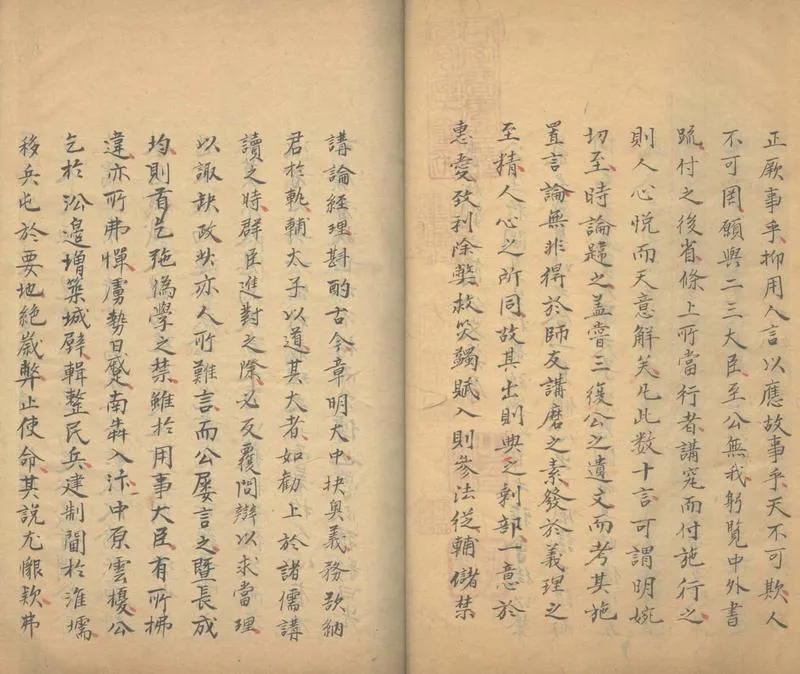 正厥事乎抑用人言以應故事乎天不可欺人
不可罔願與二三大臣至公無我躬覽中外書
䟽付之後省條上所當行者講究而付施行之
則人心悅而天意解矣凡此数十言可謂明婉
切至時論韙之盖嘗三復公之遺文而考其施
置言論無非得於師友講磨之素發於義理之
至精人心之所同故其出則典之剌部一意於
惠愛孜利除弊救災蠲賦入則参法從輔儲禁
講論經理斟酌古今章明大中抉奥義務欲納
君於軌輔太子以道其大者如勸上於諸儒講
讀之時群臣進對之際必反覆問辯以求當理
以諏缺政此亦人所難言而公屡言之暨長成
均則首乞弛偽學之禁雖於用事大臣有所拂
違亦所弗憚虜勢日蹙南犇入汴中原雲擾公
乞於沿邉增築城壁輯整民兵建制閫於淮壖
移兵屯於要地絶歲幣止使命其說尤懇欵弗